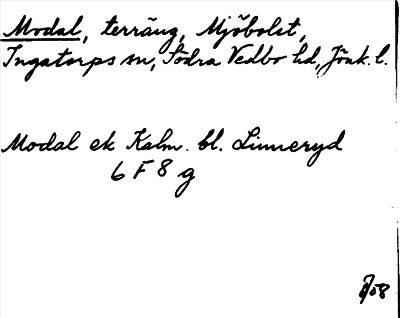 Modal, terräng, Mjöbolet,
Ingatorps sn, Södra Vedbo hd, Jönk. l.
Modal ek Kalm. bl. Linneryd
6 F 8 g